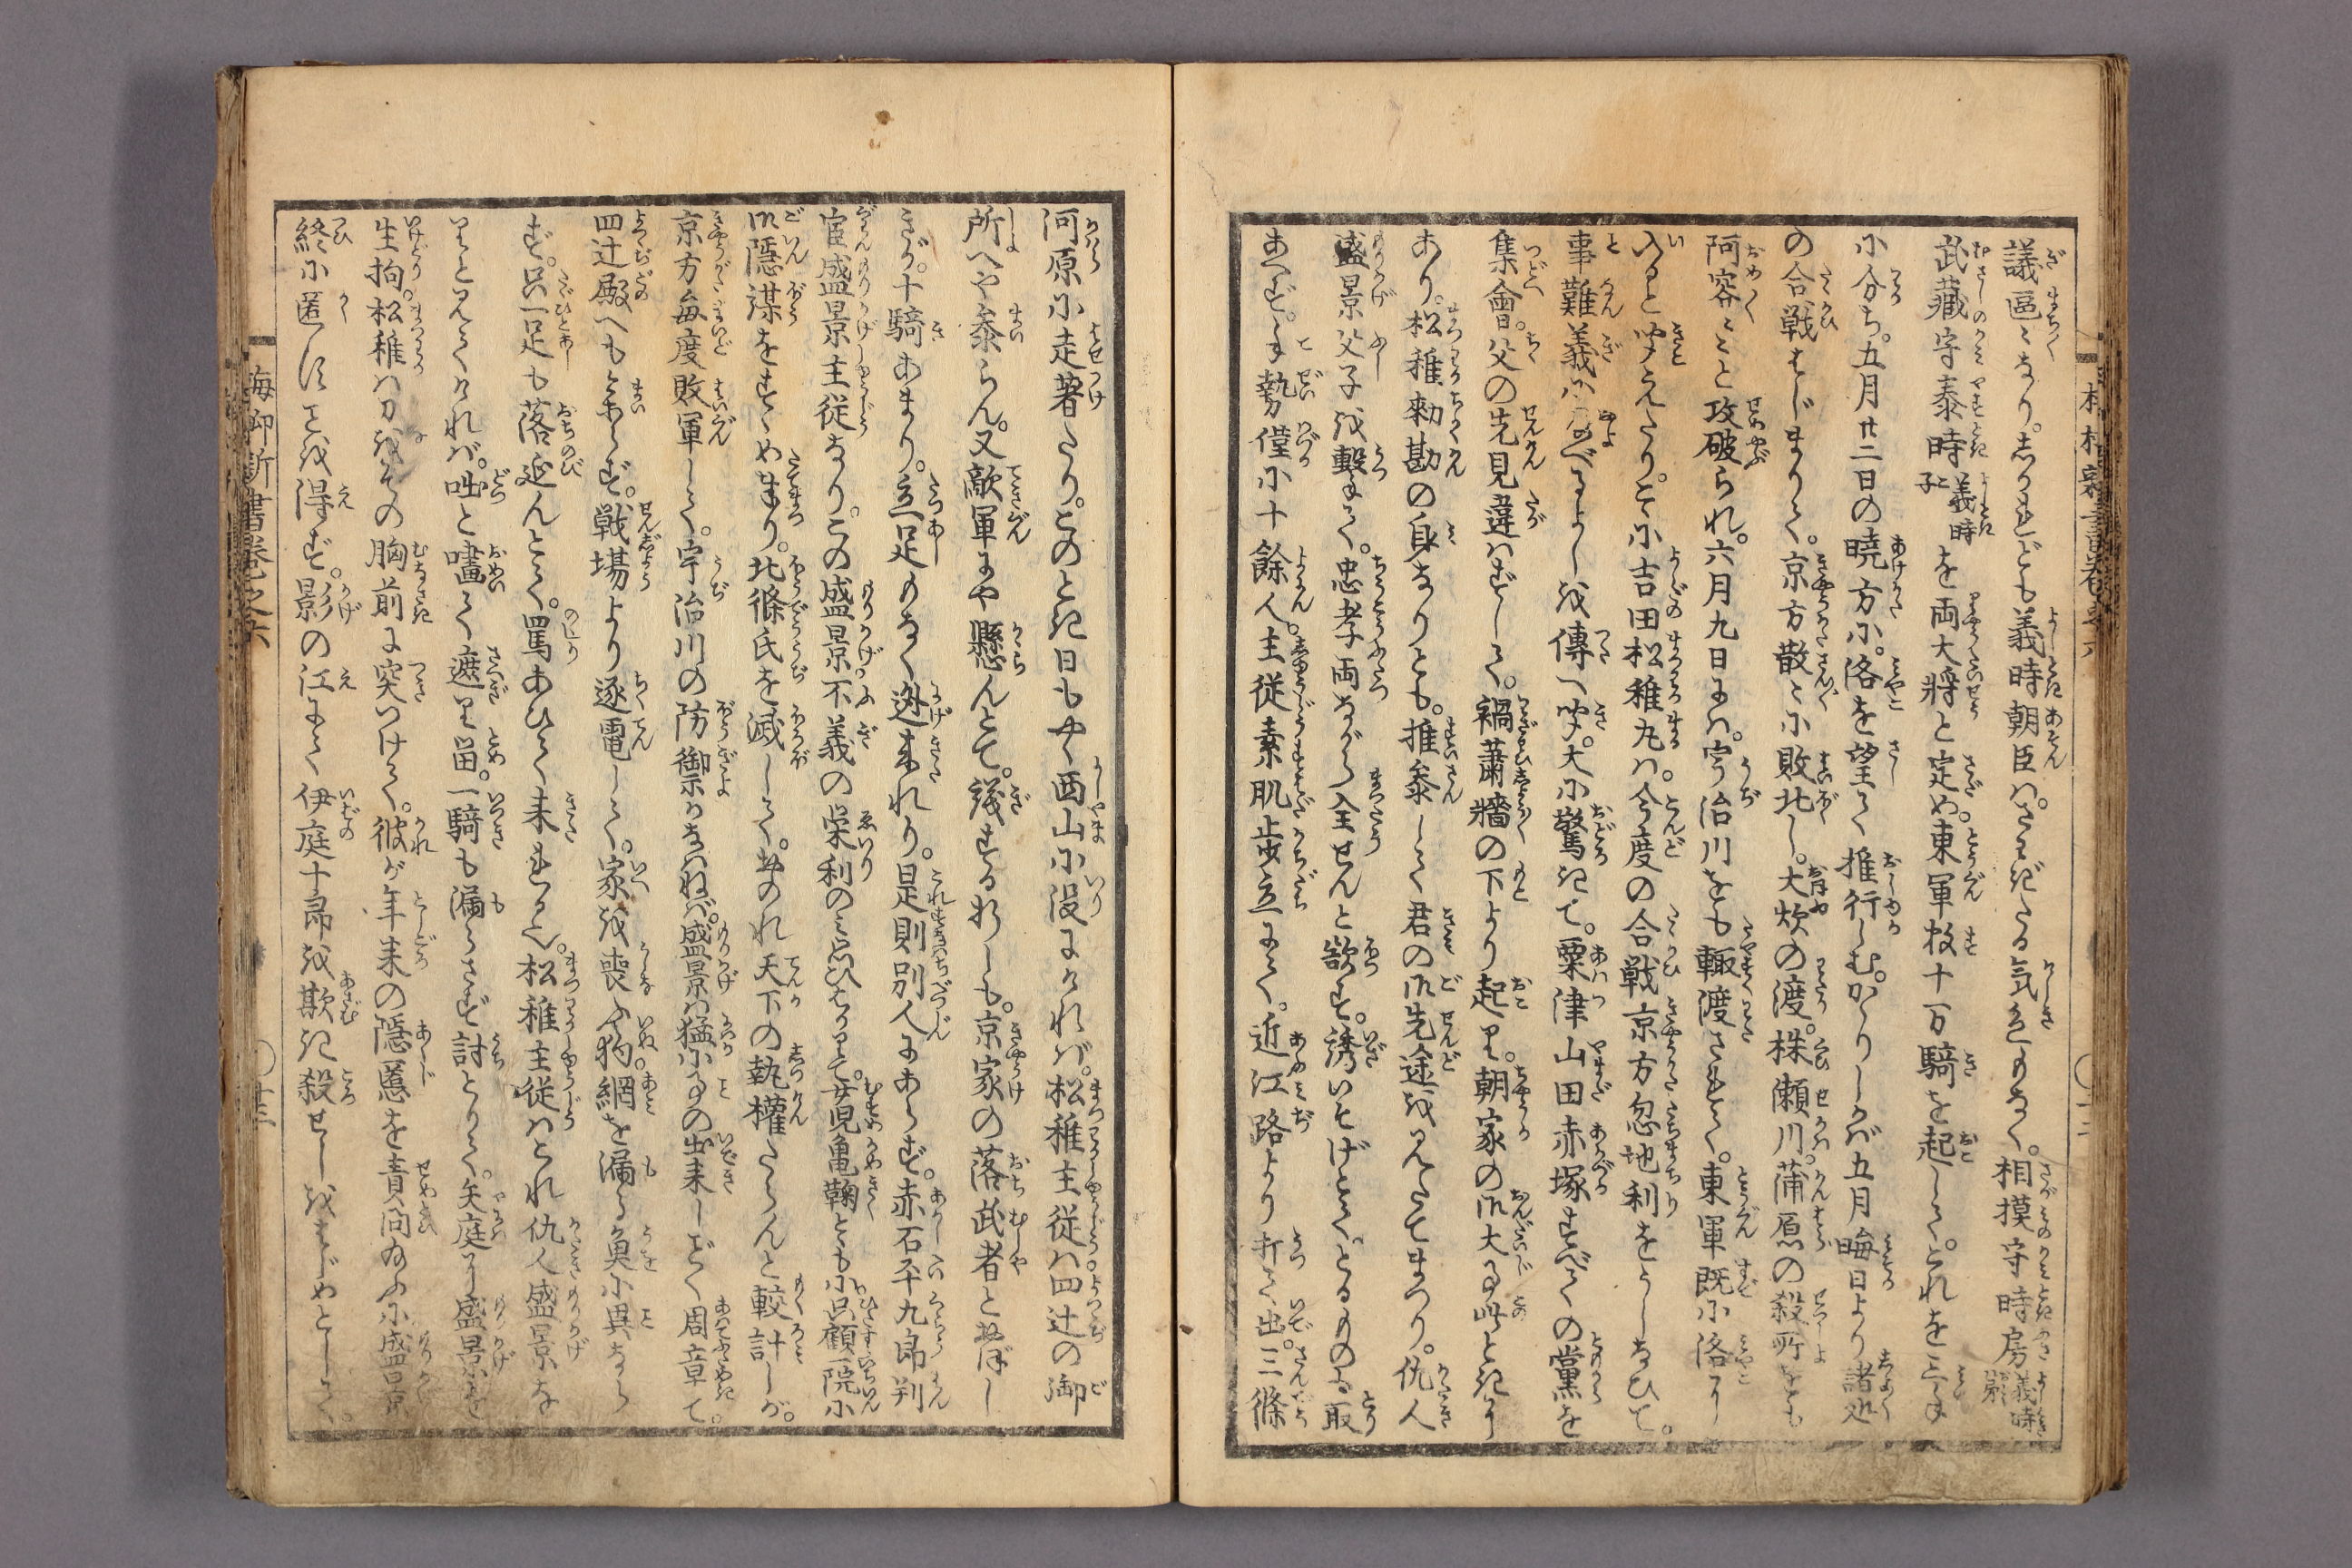 議區〻なり。しかれども義時朝臣は。さわぎたる気色もなく。相摸守時房義時弟
武藏守泰時義時子を両大将と定め。東軍数十万騎を起して。これを三手
に分ち。五月廿二日の曉方に。洛を望て推行しむ。かゝりしかば五月晦日より諸処
の合戦はじまりて。京方散〻に敗北し。大炊の渡。株瀬川。蒲原の殺所をも
阿容〻〻と攻破られ。六月九日には。宇治川をも輙渡されて。東軍既に洛に
入ると聞えたり。こゝに吉田松稚丸は。今度の合戦京方忽地利をうしなひて。
事難義に及べるよしを傳へ聞。大に驚きて。粟津山田赤塚すべての黨を
集會。父の先見違はずして。禍蕭牆の下より起り。朝家の御大事此ときに
あり。松稚勅勘の身なりとも。推参して君の御先途を見たてまつり。仇人
盛景父子を轂まて。忠孝両ながら全せんと欲す。誘いそげとて。とるものも取
あへず。手勢僅に十餘人。主従素肌歩立にて。近江路より打て出。三條
河原に走著たり。このとき日もやゝ西山に没にければ。松稚主従は四辻の御
所へや参らん。又敵軍にや懸らんとて。議する折しも。京家の落武者とおぼし
きが。十騎あまり。立足もなく迯来れり。是則別人にあらず。赤石平九郎判
官盛景主従なり。この盛景不義の栄利のみ思ひはかりて。女児亀鞠とともに。只顧一院に
御隠謀をすゝめまつり。北條氏を滅して。おのれ天下の執權たらんと較計しが。
京方毎度敗軍して。宇治川の防禦かなはねば。盛景は猛に事の出来しごとく周章て。
四辻殿へも参らず。戦場より逐電して。家を喪ふ狗。網を漏るゝ魚に異なら
ず。只一足も落延んとて。罵あひて来れるを。松稚主従はこれ仇人盛景な
りと見てければ。咄と嚍て遮り畄。一騎も漏らさず討とりて。矢庭に盛景を
生拘。松稚は刀をその胸前に突つけて。彼が年来の隠慝を責問給ふに盛景
終に匿しことを得ず。影の江にて伊庭十郎を欺き殺せしをはじめとして。